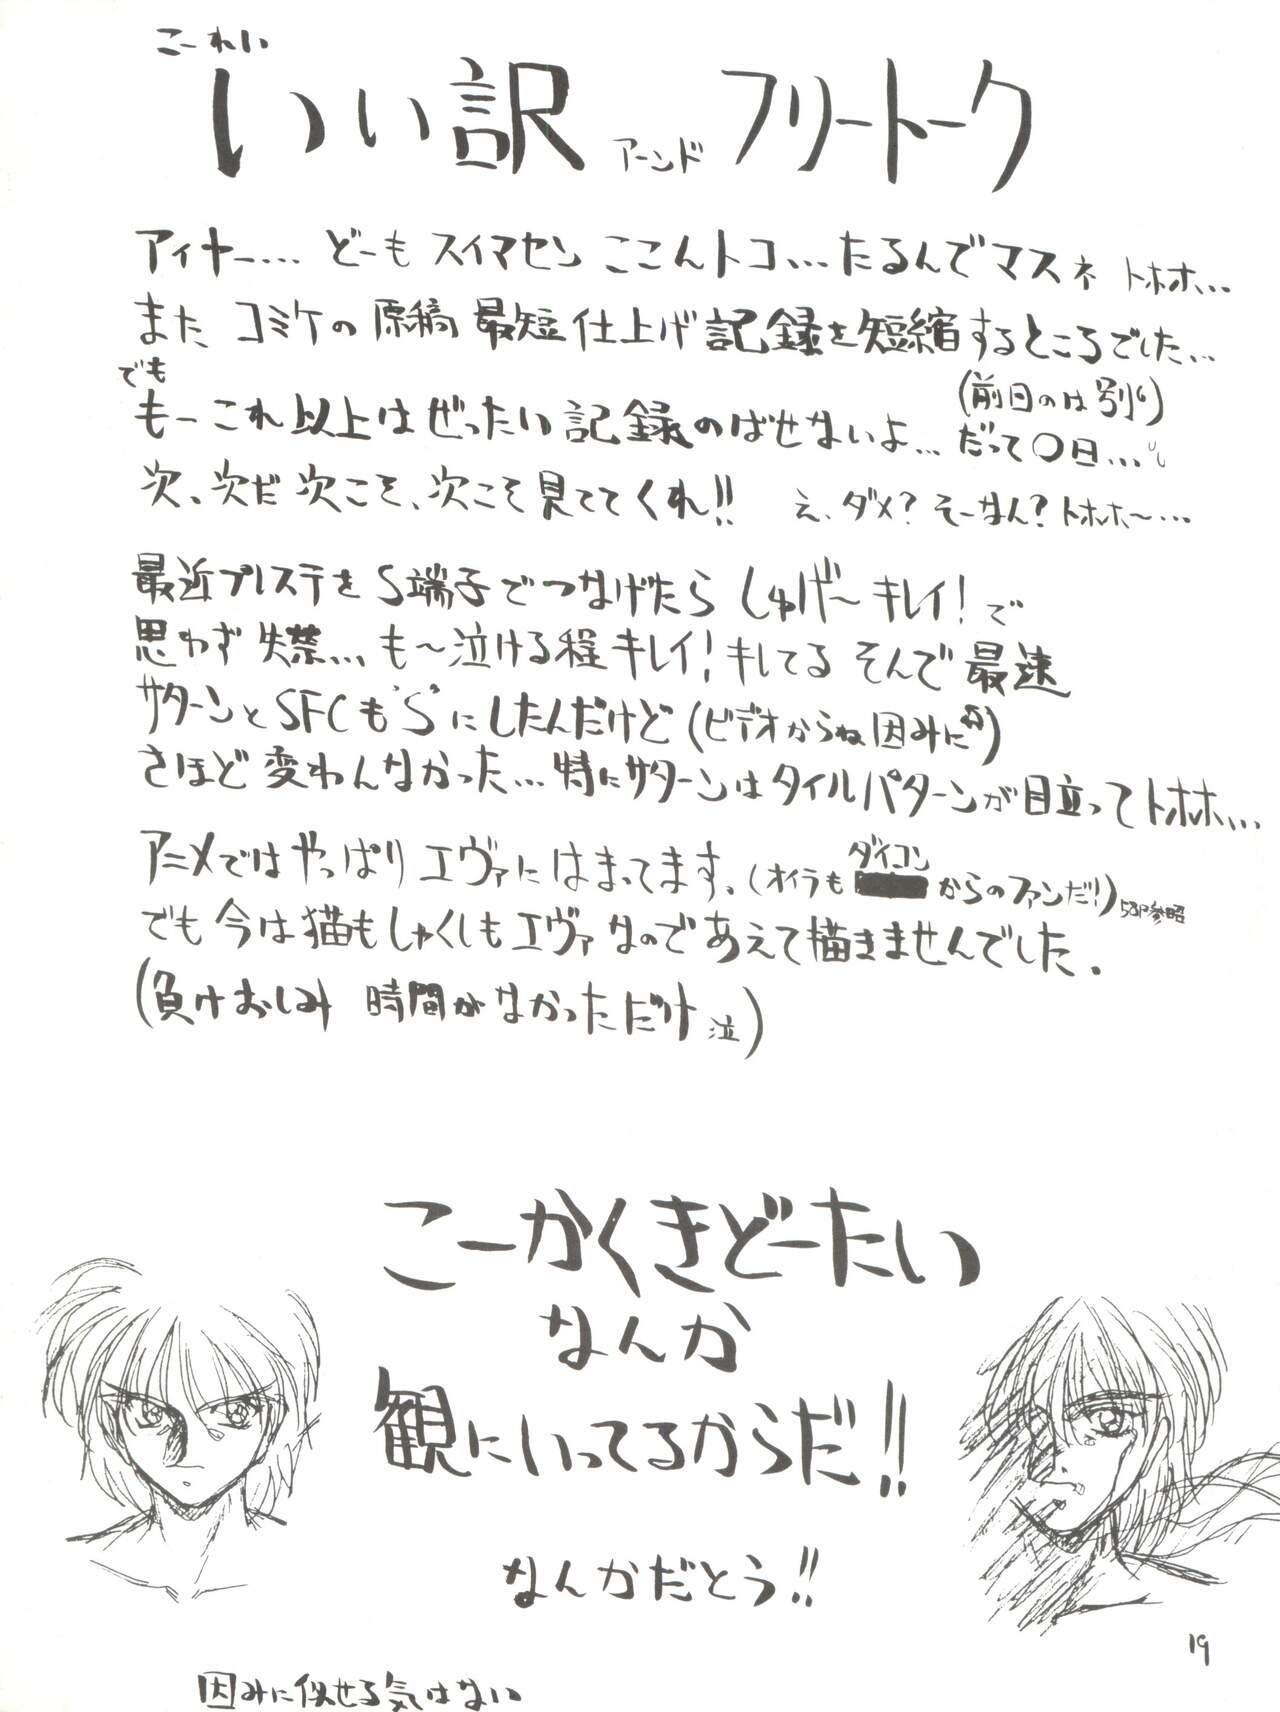 こーれい
いい訳 アーンド フリートーク
アイヤー… どーも スイマセン ここんトコ…たるんでマスネ トホホ…
また コミケの 原稿 最短 仕上げ 記録を短縮するところでした…
でも
(前日のは別)
もーこれ以上は ぜったい 記録のばせないよ… だって〇日…
次、次だ 次こそ、次こそ 見ててくれ!! え、ダメ? そーなん? トホホ〜…
最近プレステを S端子で つなげたら しゅげ〜 キレイ! で
思わず 失禁… も〜泣ける程 キレイ! キレてる そんで 最速
サターンと SFCも'S'に したんだけど (ビデオからね 因みに)
さほど 変わんなかった… 特にサターンは タイルパターンが 目立って トホホ…
アニメでは やっぱり エヴァに はまってます。(オイラも ダイコン からの ファンだ!) 53P参照
でも 今は 猫も しゃくしも エヴァ なので あえて 描きませんでした。
(負けおしみ 時間が なかっただけ 泣)
こーかくきどーたい
なんか
観にいってるからだ!!
なんかだとう!!
19
因みに似せる気はない